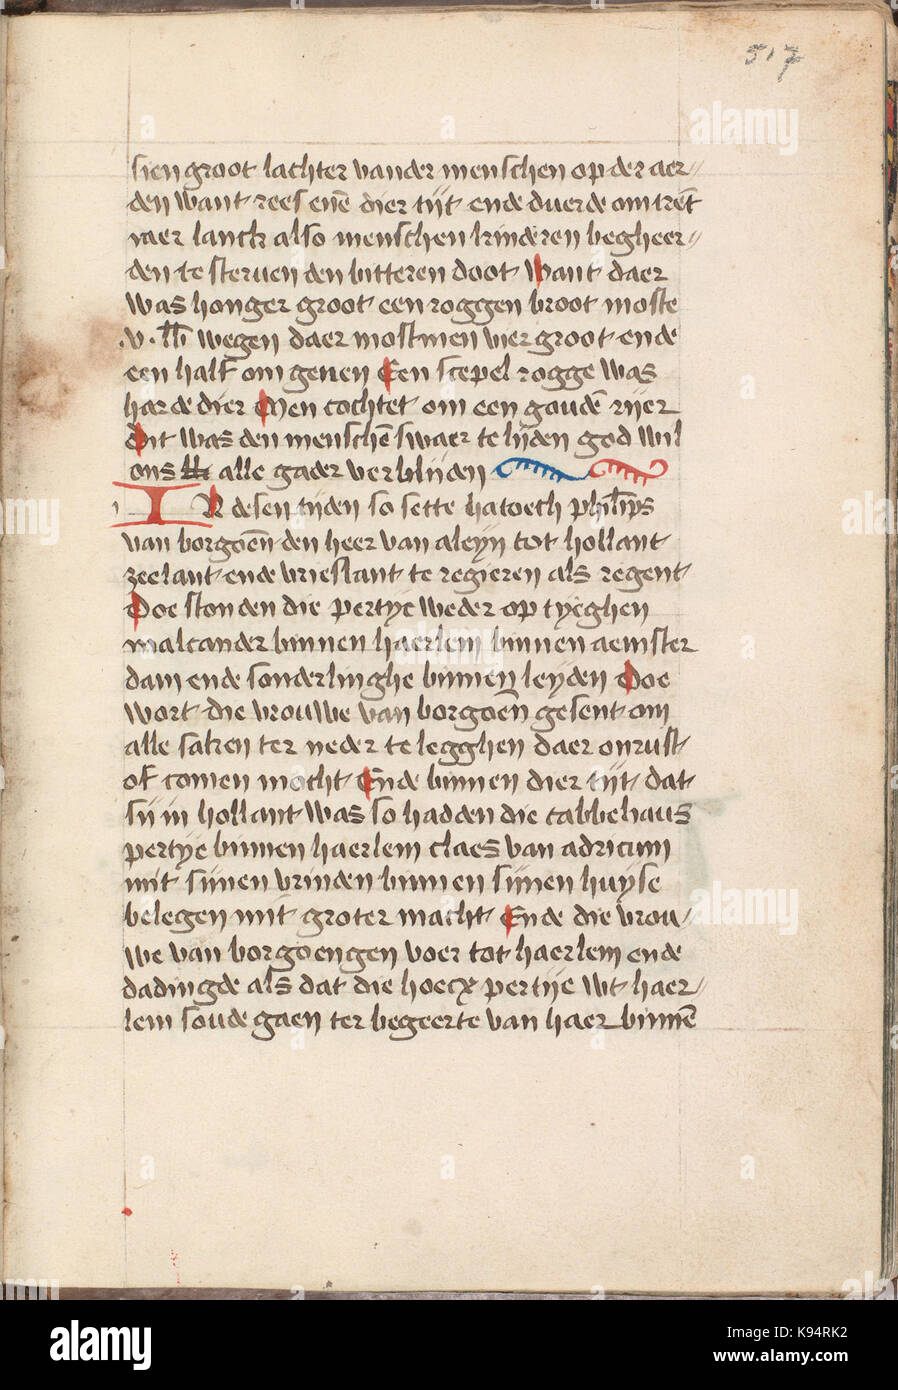 517
sien groot lachter vander menschen op der aer//
den want rees enē dier tijt ende duerde omtrēt
iaer lanck also menschen kinderen begheer//
den te steruen den bitteren doot want daer
was honger groot een roggen broot moste
.v. lb wegen daer most men vier groot ende
een half om geuen Een scepel rogge was
harde dier Men cochtet om een gaudē rijer
Dit was den menschē swaer te lijden god wil
ons alle gader verblijden
IN desen tijden so sette hatoech philips
van borgoēn den heer van aleyn tot hollant
zeelant ende vrieslant te regieren als regent
Doe stonden die pertye weder op tyeghen
malcander binnen haerlem binnen aemster
dam ende sonderlinghe binnen leyden Doe
wort die vrouwe van borgoēn gesent om
alle saken ter neder te legghen daer onrust
of comen mocht Ende binnen dier tijt dat
sij in hollant was so hadden die cabbehaus
pertye binnen haerlem claes van adricum
mit sijnen vrinden binnen sijnen huyse
belegen mit groter macht Ende die vrou//
we van borgoengen voer tot haerlem ende
dadingde als dat die hoecx pertije wt haer//
lem soude gaen ter begeerte van haer binnē
alamy
Image ID: K94RK2
www.alamy.com